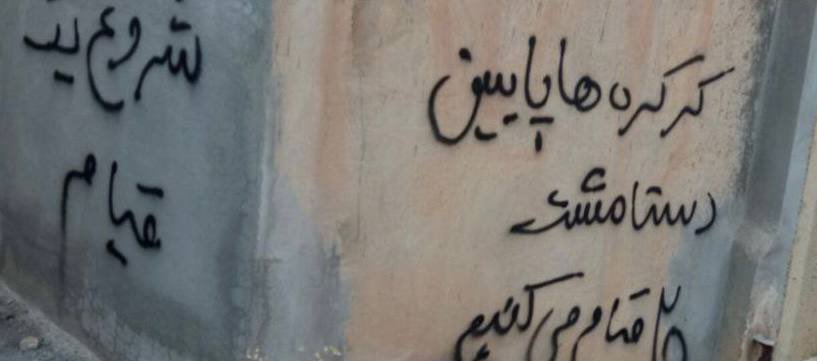 کرکره ها پایین
دستا مشت
ما قیام می کنیم
شروع یک
قیام